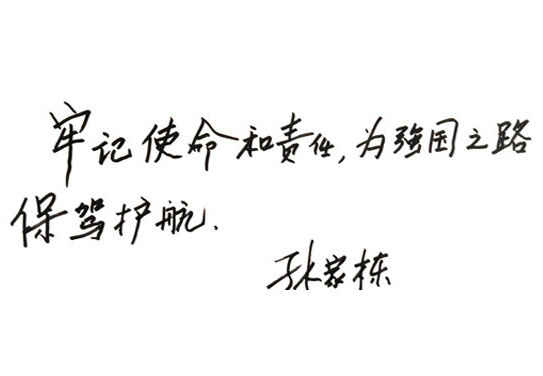 牢记使命和责任,为强国之路
保驾护航.
张家栋